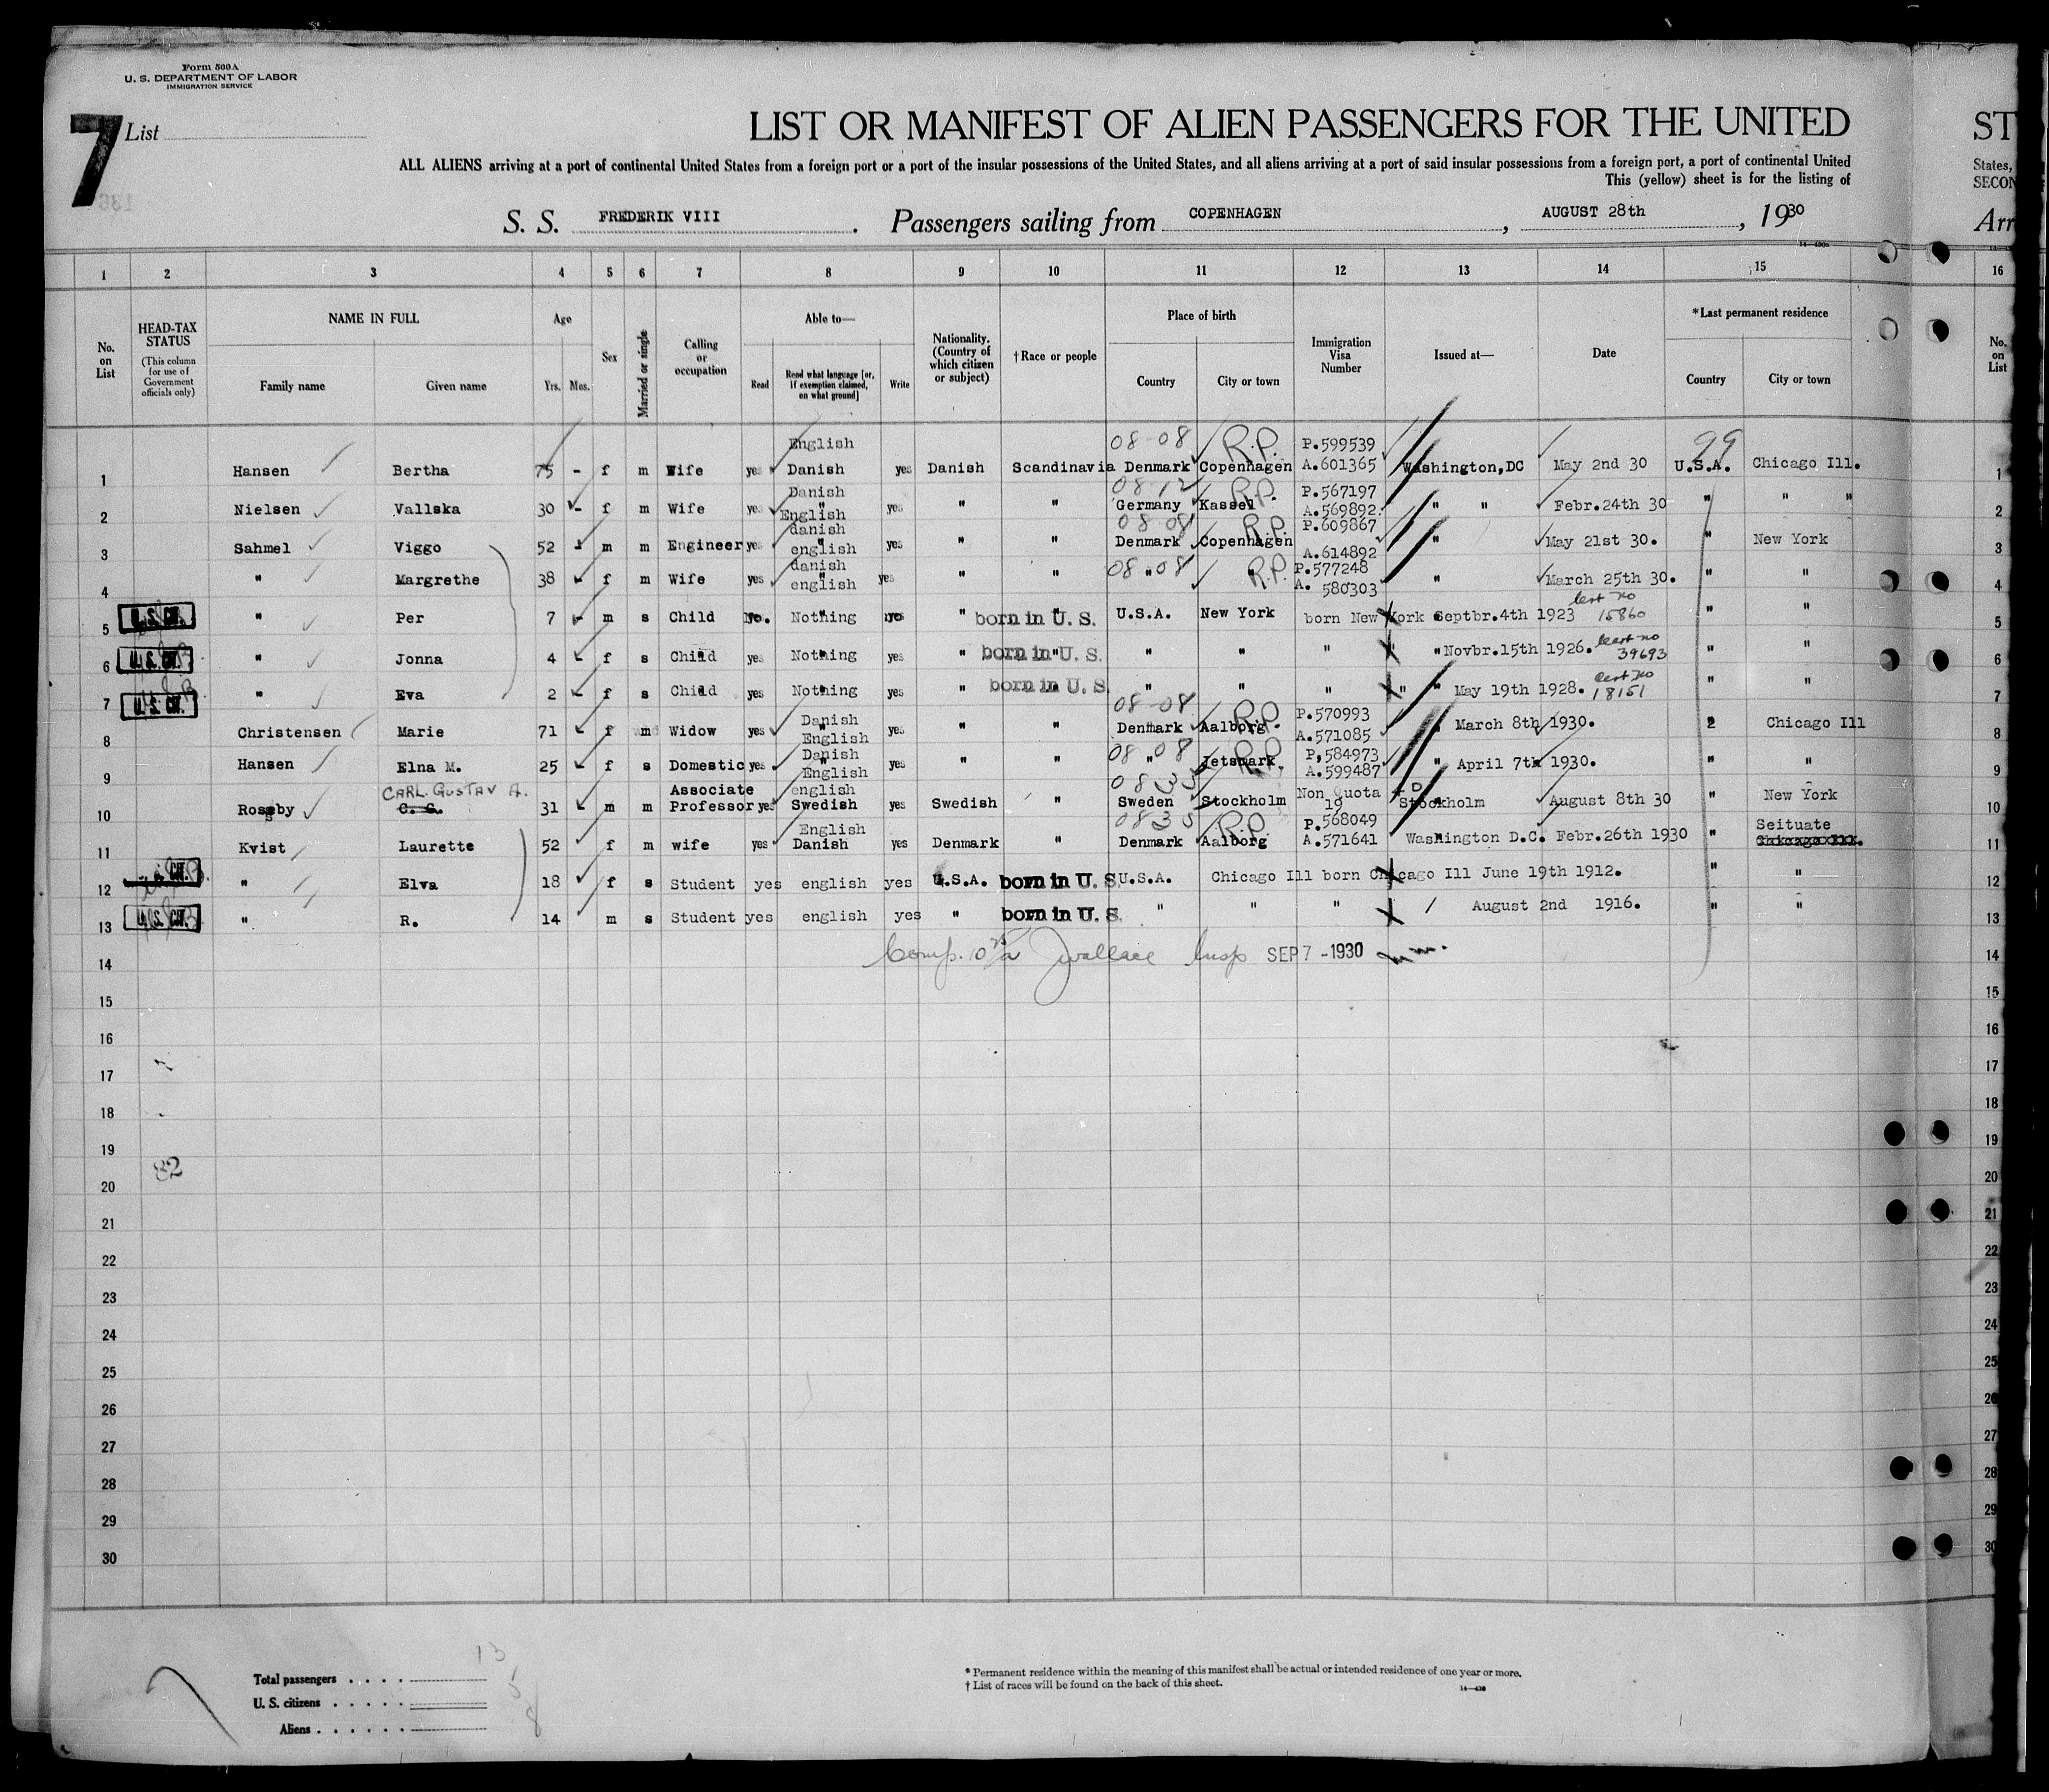 Form 500A
U. S. DEPARTMENT OF LABOR
IMMIGRATION SERVICE
7 List
LIST OR MANIFEST OF ALIEN PASSENGERS FOR THE UNITED
ST
ALL ALIENS arriving at a port of continental United States from a foreign port or a port of the insular possessions of the United States, and all aliens arriving at a port of said insular possessions from a foreign port, a port of continental United
States,
This (yellow) sheet is for the listing of
SECON
S. S. FREDERIK VIII. Passengers sailing from COPENHAGEN, AUGUST 28th, 1930
Arr
1 2 3 4 5 6 7 8 9 10 11 12 13 14 15 16
No. on List
HEAD-TAX STATUS
(This column for use of Government officials only)
NAME IN FULL
Family name Given name
Age
Yrs. Mos.
Sex
Married or single
Calling or occupation
Able to—
Read
Read what language [or, if exemption claimed, on what ground]
Write
Nationality. (Country of which citizen or subject)
†Race or people
Place of birth
Country City or town
Immigration Visa Number
Issued at—
Date
*Last permanent residence
Country City or town
No. on List
English 08-08 R.P. P.599539 99
1 Hansen Bertha 75 - f m Wife yes Danish yes Danish Scandinavia Denmark Copenhagen A.601365 Washington,DC May 2nd 30 U.S.A. Chicago Ill. 1
Danish 08 12 R.P. P.567197
2 Nielsen Vallska 30 - f m Wife yes " English yes " " Germany Kassel A.569892. " " Febr.24th 30 " " " 2
danish 08 08 R.P. P.609867
3 Sahmel Viggo 52 - m m Engineer yes " english yes " " Denmark Copenhagen A.614892 " May 21st 30. " New York 3
danish 08 08 R.P. P.577248
4 " Margrethe 38 - f m Wife yes " english yes " " " " A. 580303 " March 25th 30. " " 4
5 U.S. CIT. " Per 7 - m s Child no. Nothing yes " born in U. S. U.S.A. New York born New York Septbr.4th 1923 cert no 15860 " " 5
6 U. S. CIT. " Jonna 4 - f s Child yes Nothing yes " born in U. S. " " " " " Novbr.15th 1926. cert no 39693 " " 6
7 U. S. CIT. " Eva 2 - f s Child yes Nothing yes " born in U. S. " " " " " May 19th 1928. cert no 18151 " " 7
Danish 08-08 R.P. P.570993
8 Christensen Marie 71 - f Widow yes English yes " " Denmark Aalborg. A.571085 " March 8th 1930. " Chicago Ill 8
Danish 08 08 R.P. P.584973
9 Hansen Elna M. 25 - f s Domestic yes " English yes " " " Jetsmark. A.599487 " April 7th 1930. " " 9
CARL GUSTAV A. Associate english 08 35 Non Quota
10 Rossby C. G. 31 m m Professor yes Swedish yes Swedish " Sweden Stockholm 19 Stockholm August 8th 30 " New York 10
English 08 35 R.P. P.568049 Seituate
11 Kvist Laurette 52 f m wife yes Danish yes Denmark " Denmark Aalborg A.571641 Washington D.C. Febr.26th 1930 " Chicago Ill. 11
12 CIT. " Elva 18 f s Student yes english yes U.S.A. born in U. S. U.S.A. Chicago Ill born Chicago Ill June 19th 1912. " " 12
13 U. S. CIT. " R. 14 m s Student yes english yes " born in U. S. " " " August 2nd 1916. " " 13
14 Comp. Wallace Insp SEP 7 - 1930 14
15 15
16 16
17 17
18 18
19 19
82
20 20
21 21
22 22
23 23
24 24
25 25
26 26
27 27
28 28
29 29
30 30
Total passengers . . . . 13
U. S. citizens . . . . . 5
Aliens . . . . . . 8
* Permanent residence within the meaning of this manifest shall be actual or intended residence of one year or more.
† List of races will be found on the back of this sheet.